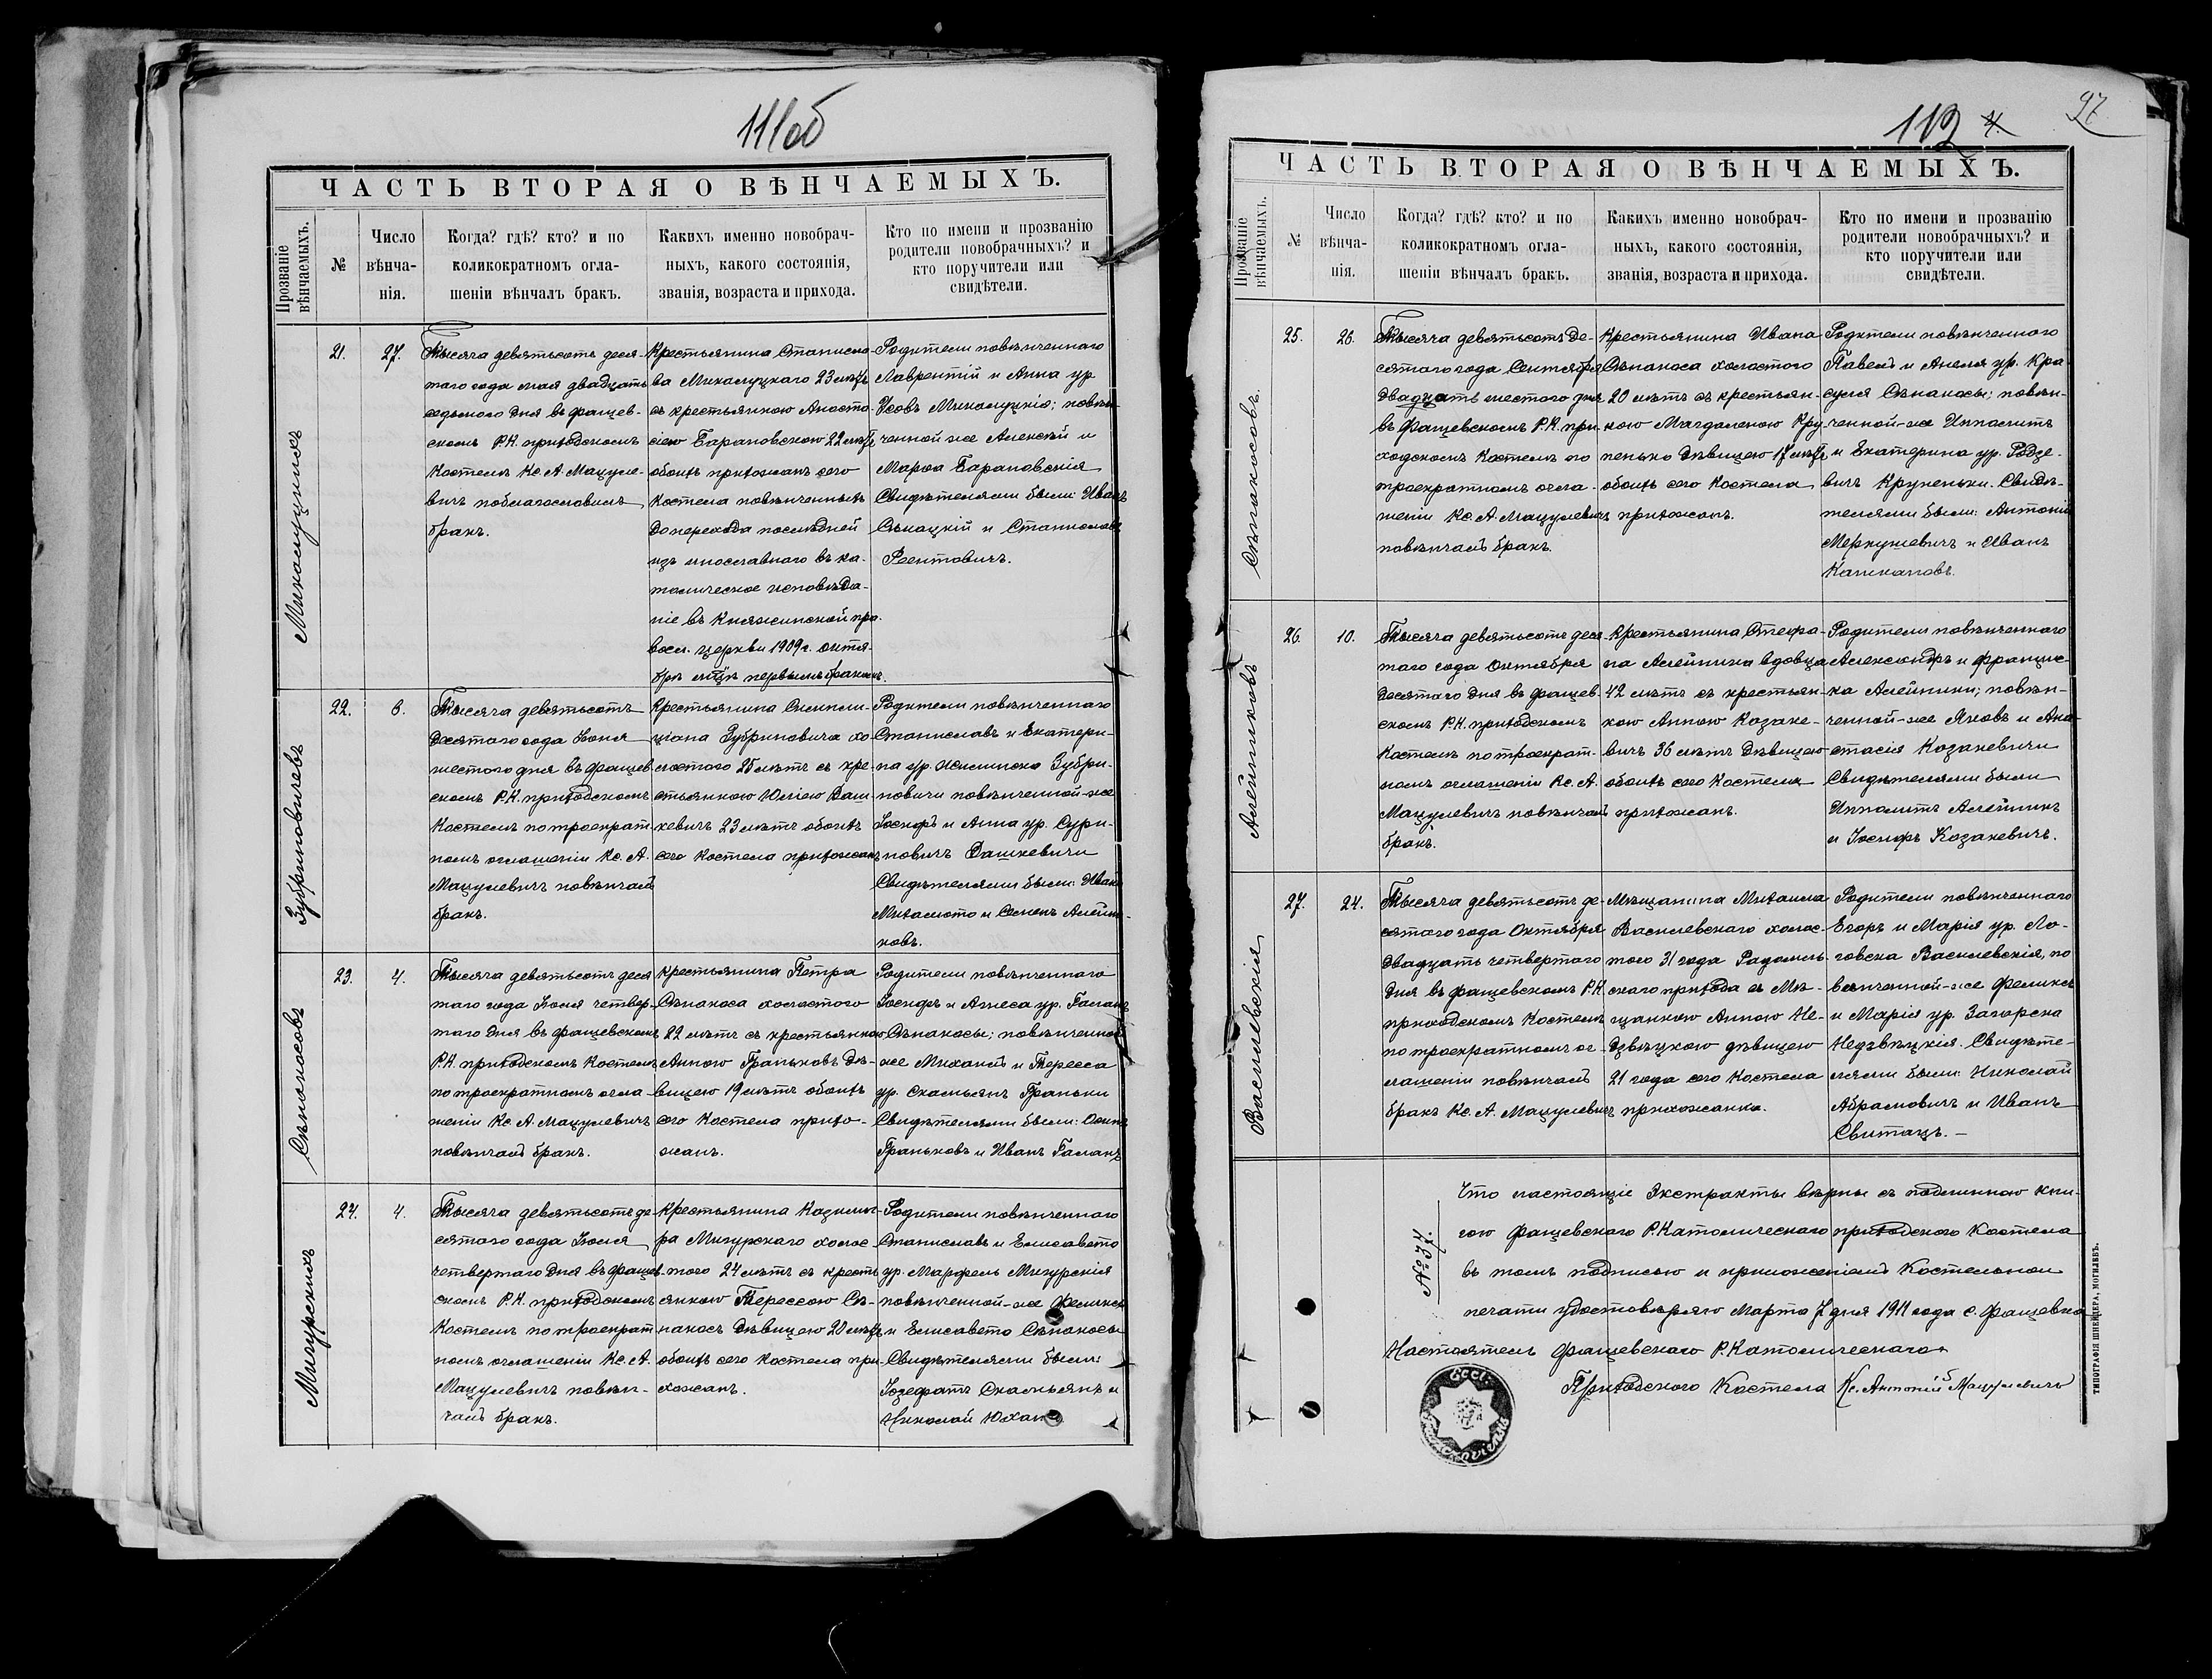 111об
ЧАСТЬ ВТОРАЯ О ВѢНЧАЕМЫХЪ.
Прозваніе вѣнчаемыхъ.
№
Число вѣнча-нія.
Когда? гдѣ? кто? и по
коликократномъ огла-
шеніи вѣнчалъ бракъ.
Какихъ именно новобрач-
ныхъ, какого состоянія,
званія, возраста и прихода.
Кто по имени и прозванію
родители новобрачныхъ? и
кто поручители или
свидѣтели.
Микалуцкихъ
21.
27.
Тысяча девятьсотъ деся-
таго года мая двадцать
седьмого дня въ фащев-
скомъ Р.К. приходскомъ
Костелѣ Кс. А. Мацуле-
вичъ поблагословилъ
бракъ.
Крестьянина Станисла-
ва Микалуцкаго 23 лѣтъ
съ крестьянкою Анаста-
сіею Барановскою 22 лѣтъ
обоихъ прихожанъ сего
Костела повѣнченныхъ
до перехода послѣдней
изъ инославнаго въ ка-
толическое исповѣда-
ніе въ Княжинской пра-
восл. церкви 1909 г. октя-
брѣ мѣцѣ первымъ бракомъ.
Родители повѣнченнаго
Лаврентій и Анна ур
Усовъ Микалуцкіе; повѣн-
ченной же Алексѣй и
Марѳа Барановскія
Свидѣтелями были: Иванъ
Сѣнацкій и Станиславъ
Реентовичъ.
Зубриновичевъ
22.
6.
Тысяча девятьсотъ
десятаго года Іюня
шестого дня въ фащев-
скомъ Р.К. приходскомъ
Костелѣ по троекрат-
номъ оглашеніи Кс. А.
Мацулевичъ повѣнчалъ
бракъ.
Крестьянина Симпли-
ціана Зубриновича хо-
лостого 25 лѣтъ съ кре-
стьянкою Юліею Даш-
кевичъ 23 лѣтъ обоихъ
сего Костела прихожанъ
Родители повѣнченнаго
Станиславъ и Екатери-
на ур. Жилинска Зубри-
новичи повѣнченной-же
Іосифъ и Анна ур. Сури-
новичъ Дашкевичи
Свидѣтелями были: Иванъ
Михалюто и Семенъ Алейни-
ковъ.
Сѣнокосовъ
23.
4.
Тысяча девятьсотъ деся
таго года Іюля четвер-
таго дня въ фащевскомъ
Р.К. приходскомъ Костелѣ
по троекратномъ огла-
шеніи Кс. А. Мацулевичъ
повѣнчалъ бракъ.
Крестьянина Петра
Сѣнакоса холостого
22 лѣтъ съ крестьянкою
Анною Граньковъ дѣ-
вицею 19 лѣтъ обоихъ
сего Костела прихо-
жанъ.
Родители повѣнченнаго
Іосифъ и Агнеса ур. Галанъ
Сѣнакосы; повѣнченной
же Михаилъ и Тересса
ур. Скамьянъ Граньки
Свидѣтелями были: Осипъ
Граньковъ и Иванъ Галанъ
Мигурскихъ
24.
4.
Тысяча девятьсотъ де-
сятаго года Іюля
четвертаго дня въ фащев-
скомъ Р.К. приходскомъ
Костелѣ по троекрат
номъ оглашеніи Кс. А.
Мацулевичъ повѣн-
чалъ бракъ.
Крестьянина Казими-
ра Мигурскаго холос-
того 24 лѣтъ съ кресть
янкою Терессою Сѣ-
накосъ дѣвицею 20 лѣтъ
обоихъ сего Костела при-
хожанъ.
Родители повѣнченнаго
Станиславъ и Елисавета
ур. Марфель Мигурскія
повѣнченной-же Феликсъ
и Елисавета Сѣнакосы
Свидѣтелями были:
Іозефатъ Скамьянъ и
Николай Юхан
112 4.
97
ЧАСТЬ ВТОРАЯ О ВѢНЧАЕМЫХЪ.
Прозваніе вѣнчаемыхъ.
№
Число вѣнча-нія.
Когда? гдѣ? кто? и по
коликократномъ огла-
шеніи вѣнчалъ бракъ.
Какихъ именно новобрач-
ныхъ, какого состоянія,
званія, возраста и прихода.
Кто по имени и прозванію
родители новобрачныхъ? и
кто поручители или
свидѣтели.
Сѣнакосовъ.
25.
26.
Тысяча девятьсотъ де-
сятаго года Сентября
двадцать шестого дня
въ Фащевскомъ Р.К. при-
ходскомъ Костелѣ по
троекратномъ огла-
шеніи Кс. А. Мацулевичъ
повѣнчалъ бракъ.
Крестьянина Ивана
Сѣнакоса холостого
20 лѣтъ съ крестьян-
кою Магдаленою Кру-
пенько дѣвицею 17 лѣтъ
обоихъ сего Костела
прихожанъ.
Родители повѣнченнаго
Павелъ и Анеля ур. Кра-
суля Сѣнакосы; повѣн-
ченной-же Ипполитъ
и Екатерина ур. Родзе-
вичъ Крупеньки. Свидѣ-
телями были: Антоній
Меркулевичъ и Иванъ
Капкаповъ.
Алейниковъ
26.
10.
Тысяча девятьсотъ деся-
таго года Октября
десятаго дня въ фащев-
скомъ Р.К. приходскомъ
Костелѣ по троекрат-
номъ оглашеніи Кс. А.
Мацулевичъ повѣнчалъ
бракъ.
Крестьянина Стефа-
на Алейника вдовца
42 лѣтъ съ крестьян-
кою Анною Козаке-
вичъ 36 лѣтъ дѣвицею
обоихъ сего Костела
прихожанъ.
Родители повѣнченнаго
Александръ и Францис-
ка Алейники; повѣн-
ченной-же Яковъ и Ана-
стасія Козакевичи
Свидѣтелями были
Ипполитъ Алейникъ
и Іосифъ Козакевичъ.
Василевскія
27.
24.
Тысяча девятьсотъ де-
сятаго года Октября
двадцать четвертаго
дня въ фащевскомъ Р.К.
приходскомъ Костелѣ
по троекратномъ ог-
лашеніи повѣнчалъ
бракъ Кс. А. Мацулевичъ
Мѣщанина Михаила
Василевскаго холос-
того 31 года Радомль-
скаго прихода съ Мѣ-
щанкою Анною Не-
дзвѣцкою дѣвицею
21 года сего Костела
прихожанка.
Родители повѣнченнаго
Егоръ и Марія ур. Ло-
говска Василевскія, по
вѣнченной-же Феликсъ
и Марія ур. Загорска
Недзвѣцкія. Свидѣте-
лями были: Николай
Абрамовичъ и Иванъ
Свитацъ. —
№ 37.
Что настоящіе Экстракты вѣрны съ подлинною кни-
гою фащевскаго Р.Католическаго приходского Костела
въ томъ подписью и приложеніемъ Костельной
печати удостовѣряю Марта 7 дня 1911 года с. Фащевка
Настоятель Фащевскаго Р.Католическаго
Приходского Костела Кс. Антоній Мацулевичъ
ТИПОГРАФІЯ ШНЕЙДЕРА, МОГИЛЕВЪ.